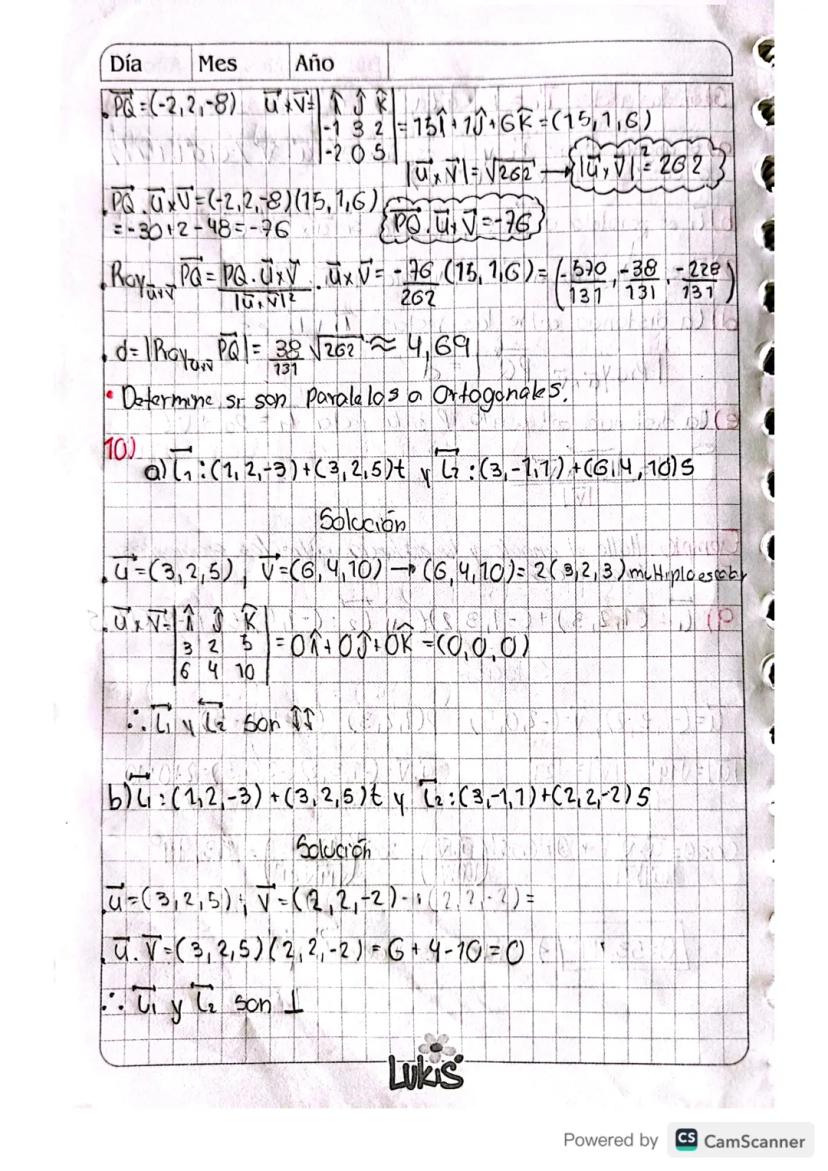 Día Mes Año
. PQ = (-2, 2, -8) u x v = | î ĵ k̂ |
| -1 3 2 | = 15î + 1ĵ + 6k̂ = (15, 1, 6)
| -2 0 5 |
|u x v| = √262 → |u x v|² = 262
. PQ . u x v = (-2, 2, -8)(15, 1, 6)
= -30 + 2 - 48 = -76 PQ . u x v = -76
. Roy u x v PQ = PQ . u x v / |u x v|² . u x v = -76/262 (15, 1, 6) = (-570/131, -38/131, -228/131)
. d = |Roy u x v PQ| = 38/131 √262 ≈ 4,69
• Determine si son paralelos o Ortogonales.
10)
a) L₁ : (1, 2, -3) + (3, 2, 5)t y L₂ : (3, -1, 1) + (6, 4, 10)s
Solución
. u = (3, 2, 5) , v = (6, 4, 10) → (6, 4, 10) = 2(3, 2, 3) multiplo escalar
. u x v = | î ĵ k̂ |
| 3 2 5 | = 0î + 0ĵ + 0k̂ = (0, 0, 0)
| 6 4 10 |
∴ L₁ y L₂ son ⇈
b) L₁ : (1, 2, -3) + (3, 2, 5)t y L₂ : (3, -1, 1) + (2, 2, -2)s
Solución
. u = (3, 2, 5) ; v = (2, 2, -2) (2, 2, -2) =
. u . v = (3, 2, 5)(2, 2, -2) = 6 + 4 - 10 = 0
∴ L₁ y L₂ son ⊥
LUKIS
Powered by CS CamScanner